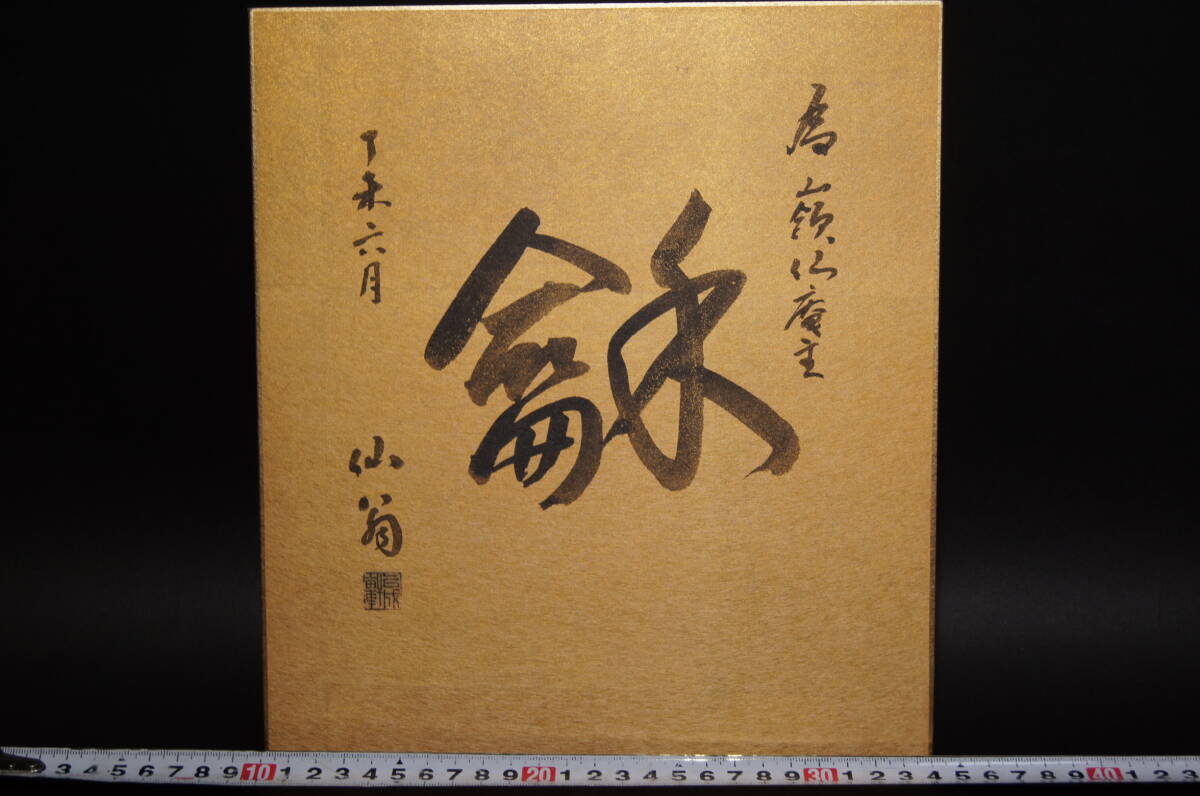 為嶺仙庵主
龢
丁未六月
仙翁
3 4 5 6 7 8 9 10 1 2 3 4 5 6 7 8 9 20 1 2 3 4 5 6 7 8 9 30 1 2 3 4 5 6 7 8 9 40 1 2 3